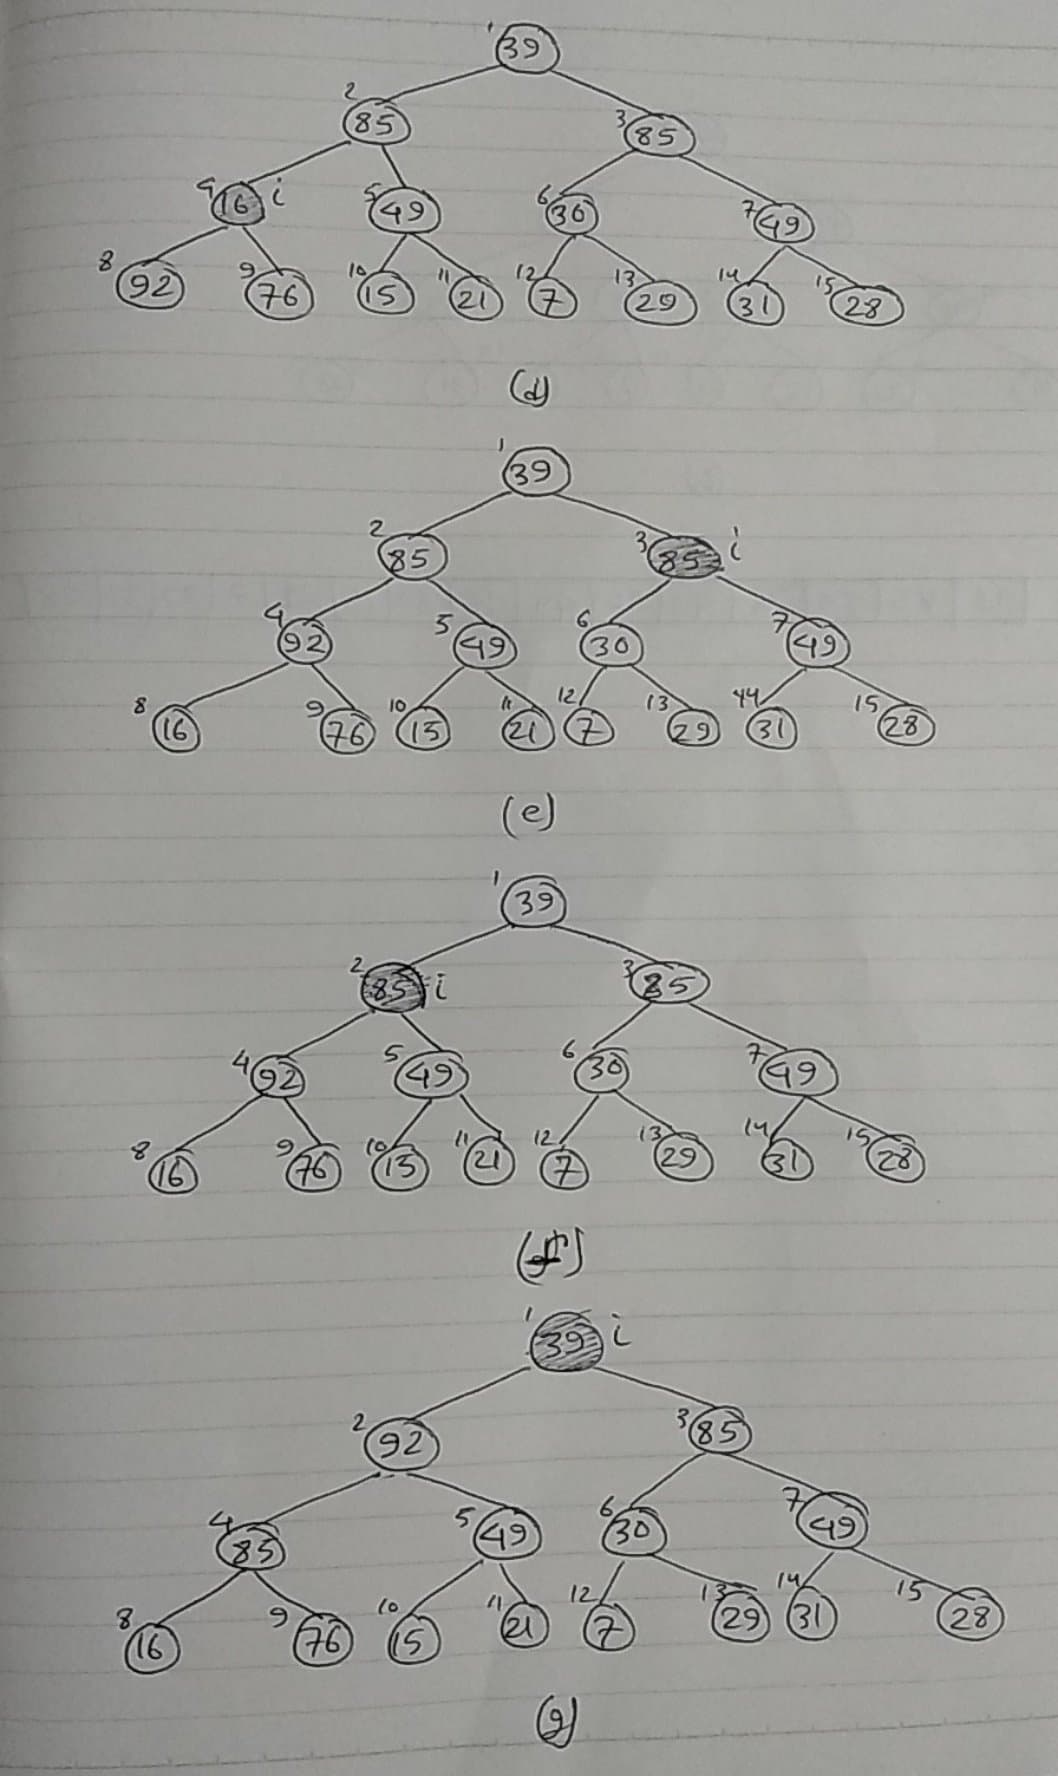 1 39
2 85 3 85
4 16 i 5 49 6 30 7 49
8 92 9 76 10 15 11 21 12 7 13 29 14 31 15 28
(d)
1 39
2 85 3 85 i
4 92 5 49 6 30 7 49
8 16 9 76 10 15 11 21 12 7 13 29 14 31 15 28
(e)
1 39
2 85 i 3 85
4 92 5 49 6 30 7 49
8 16 9 76 10 15 11 21 12 7 13 29 14 31 15 28
(f)
1 39 i
2 92 3 85
4 85 5 49 6 30 7 49
8 16 9 76 10 15 11 21 12 7 13 29 14 31 15 28
(g)